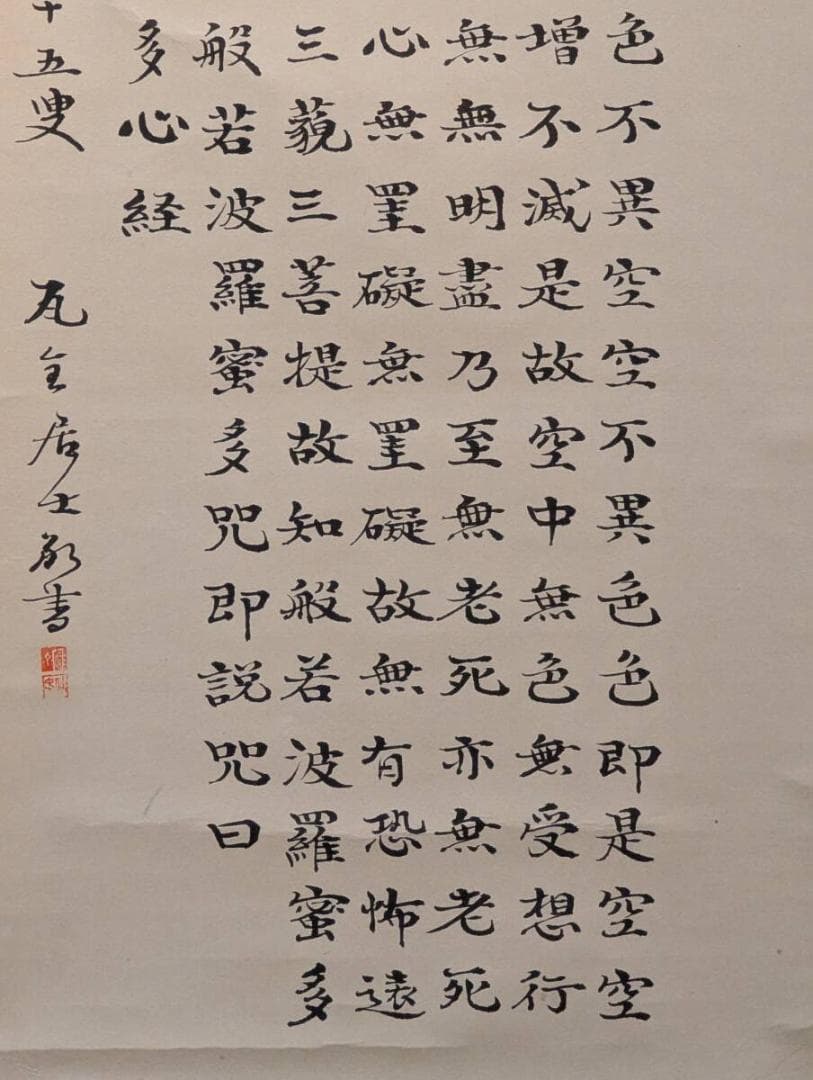 色不異空空不異色色即是空空
增不減是故空中無色無受想行
無無明盡乃至無老死亦無老死
心無罣礙無罣礙故無有恐怖遠
三藐三菩提故知般若波羅蜜多
般若波羅蜜多咒即説咒曰
多心経
十五叟 瓦全居士敬書